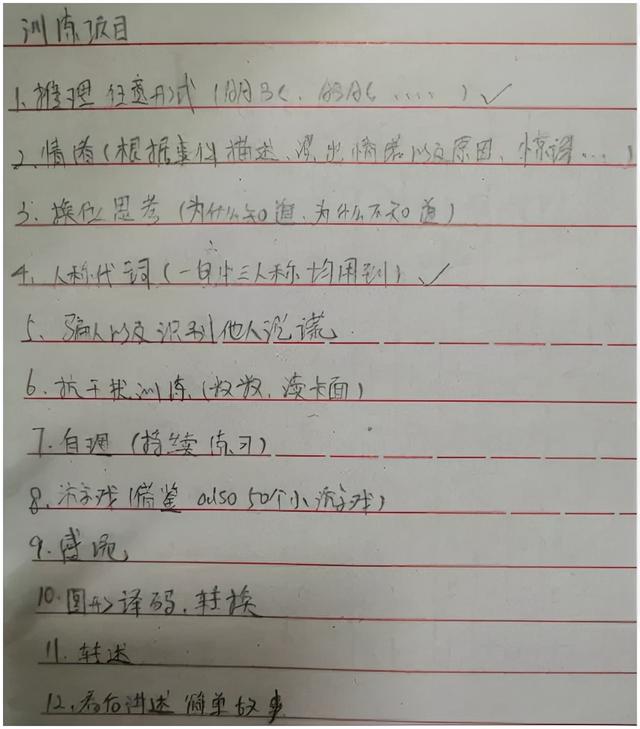 训练项目
1. 推理 任意形式 (AABC、ABAC ……) ✓
2. 情绪 (根据事件描述、 出情绪以及原因、惊讶…)
3. 换位思考 (为什么知道、为什么不知道)
4. 人称代词 (一句中三人称均用到) ✓
5. 骗人以及识别他人说谎
6. 抗干扰训练 (数数, 读卡面)
7. 自理 (持续练习)
8. 游戏 (借鉴 also 50个小游戏)
9.
10. 图形译码、转换
11. 转述
12. 看后讲述 简单故事